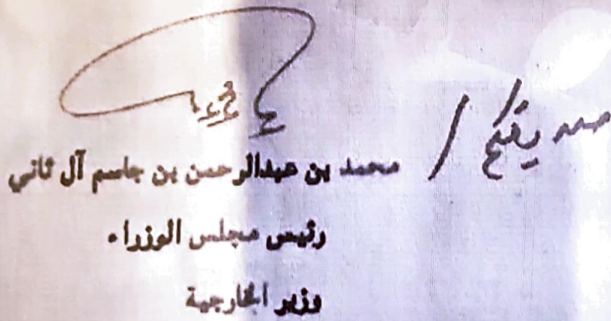 صديقكم /
محمد بن عبدالرحمن بن جاسم آل ثاني
رئيس مجلس الوزراء
وزير الخارجية